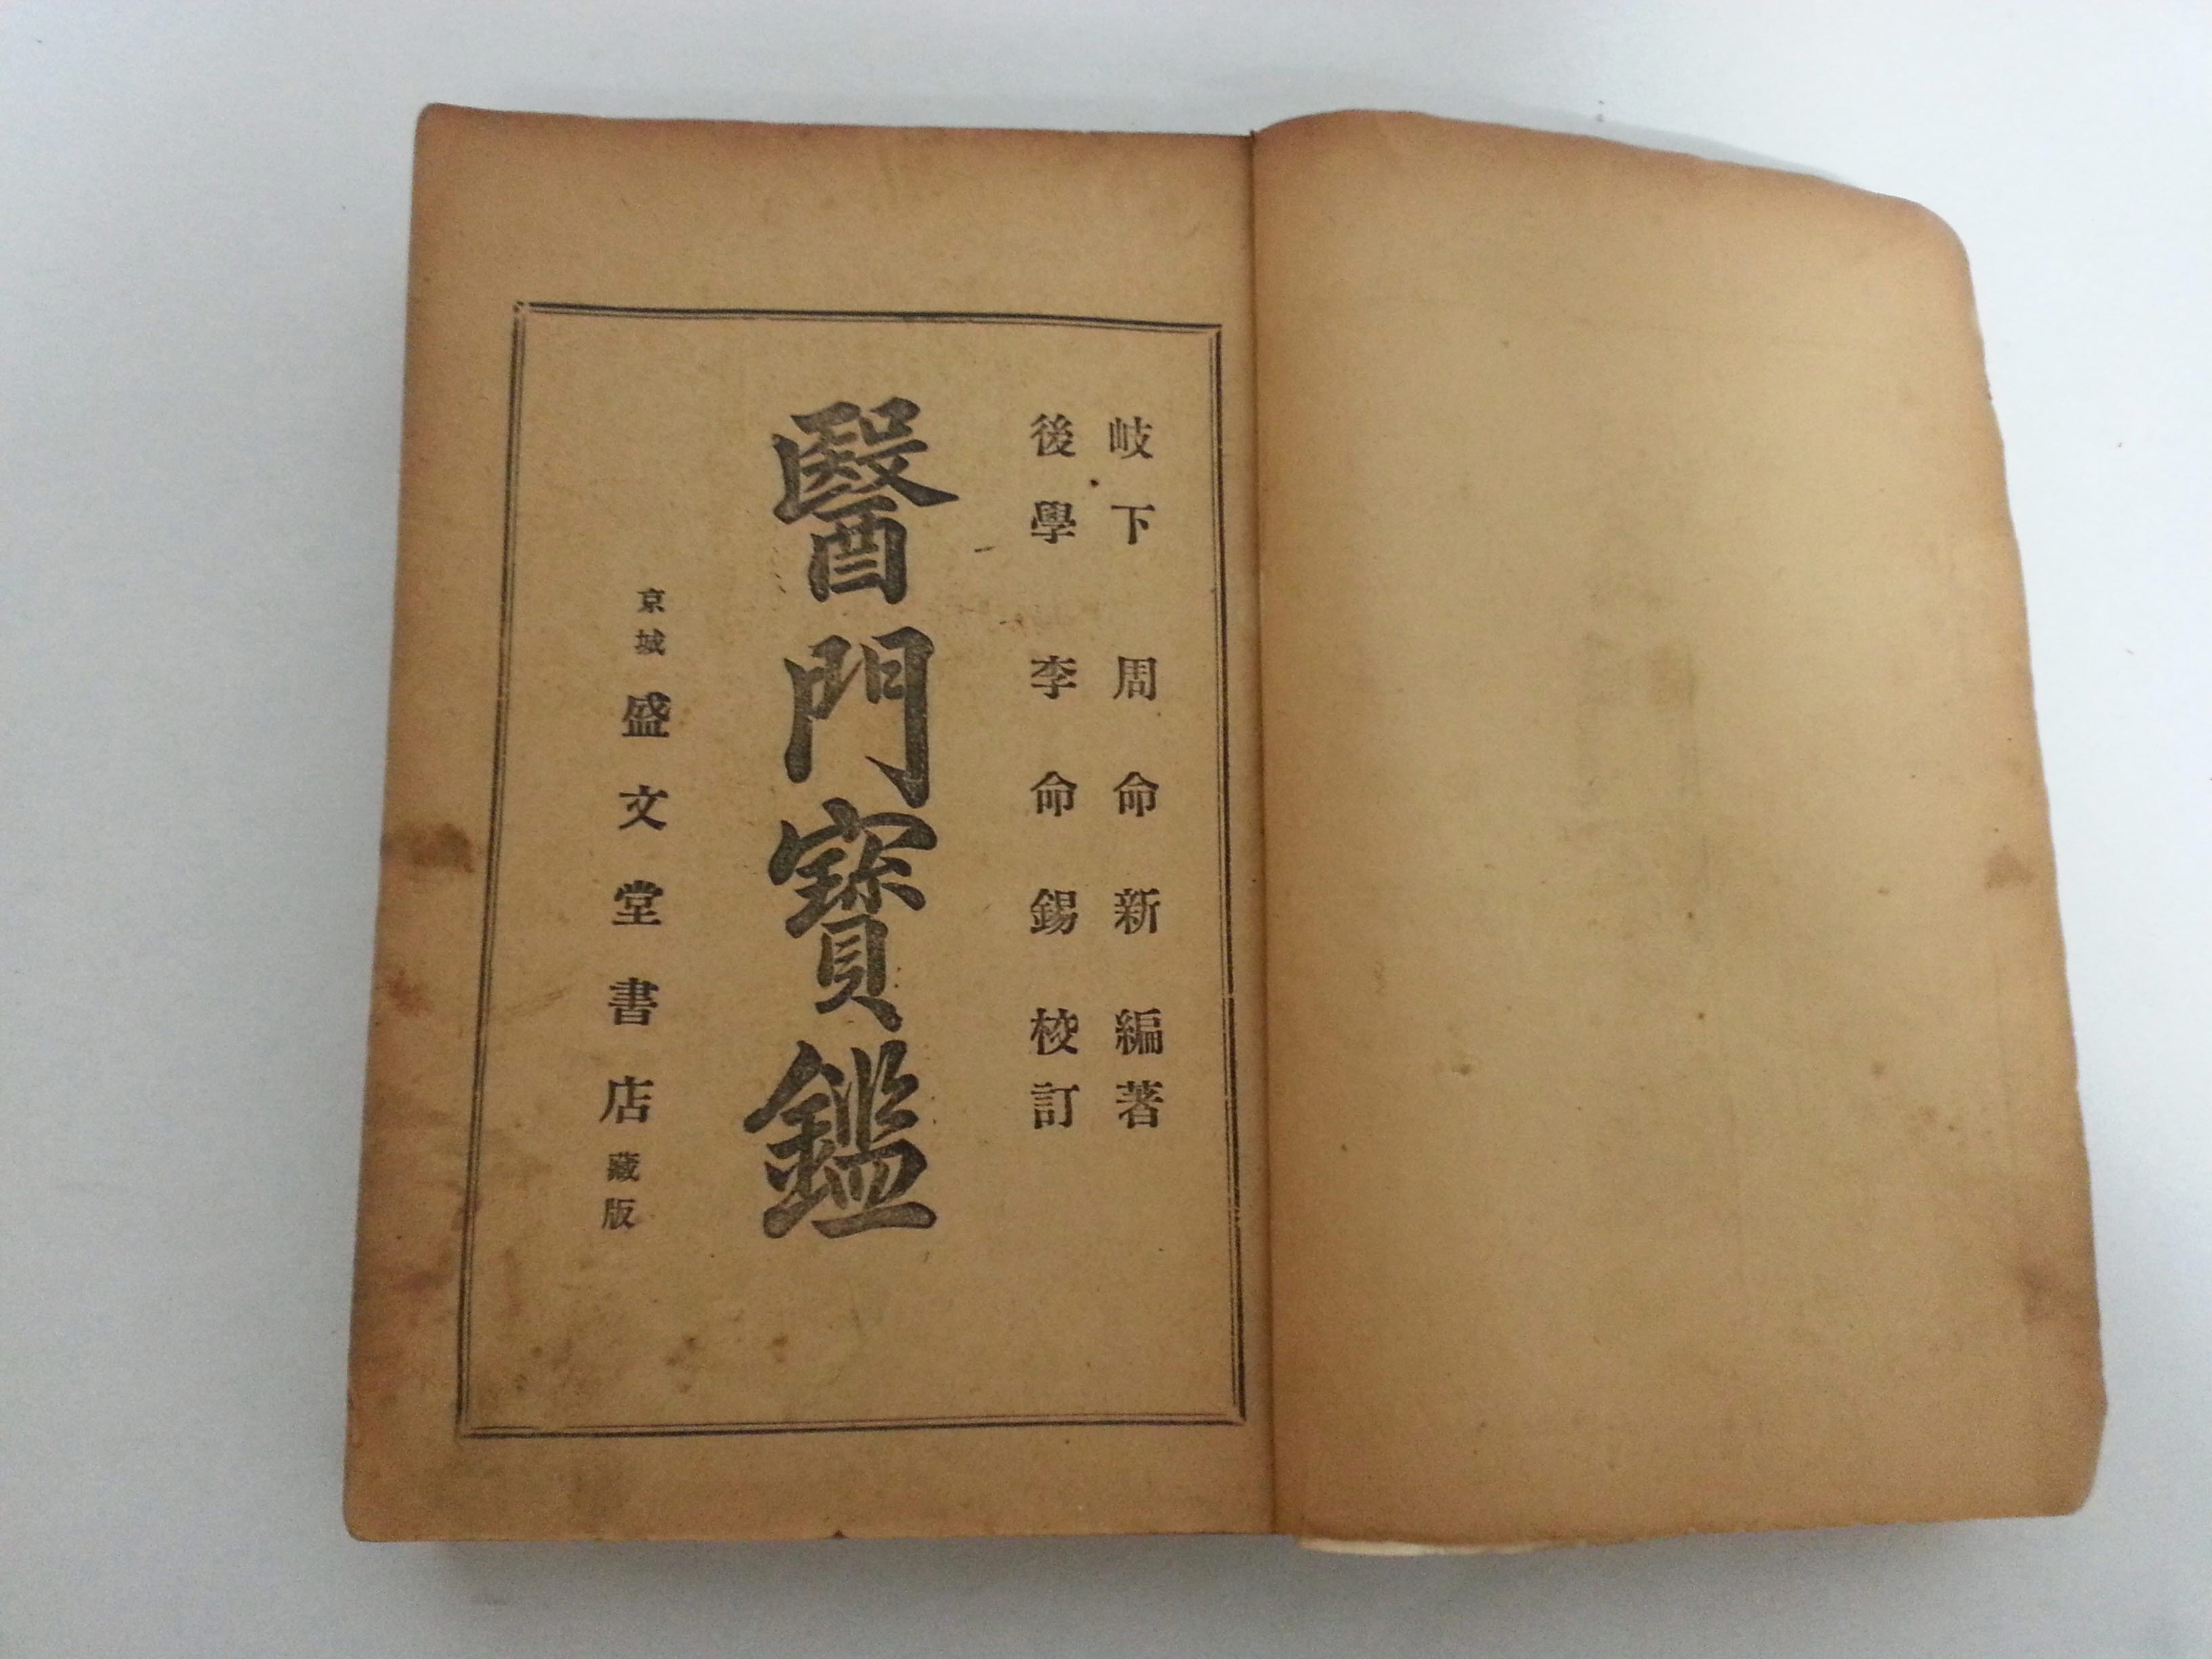 岐下 周命新 編著
後學 李命錫 校訂
醫門寶鑑
京城 盛文堂書店 藏版